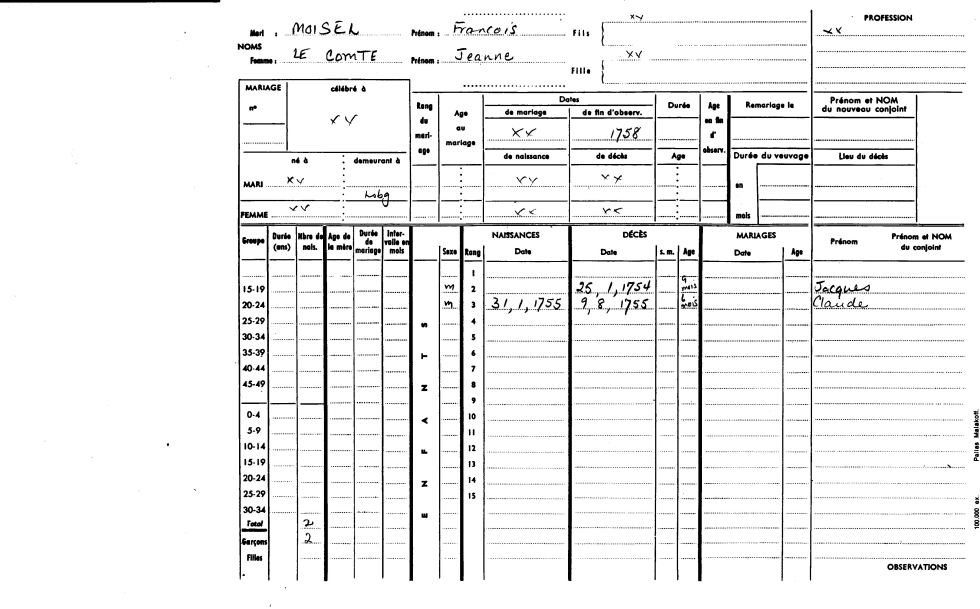 PROFESSION
Mari : MOISEL Prénom : Francois Fils { xv
xx
NOMS
Femme : LE COMTE Prénom : Jeanne Fille { xv
MARIAGE célébré à
n° xv
Rang du mari- age
Age au mariage
Dates
de mariage de fin d'observ.
xv 1758
Durée
Age en fin d' observ.
Remariage le
Prénom et NOM du nouveau conjoint
né à demeurant à
de naissance de décès Age
Durée du veuvage
Lieu du décès
MARI xv xv xx en
FEMME xv xx xx mois
Groupe Durée (ans) Nbre de nais. Age de la mère Durée de mariage Inter- valle en mois Sexe Rang NAISSANCES Date DÉCÈS Date s. m. Age MARIAGES Date Age Prénom Prénom et NOM du conjoint
1
15-19 m 2 25, 1, 1754 9 mois Jacques
20-24 m 3 31, 1, 1755 9, 8, 1755 6 mois Claude
25-29 S 4
30-34 5
35-39 T 6
40-44 7
45-49 N 8
9
0-4 A 10
5-9 11
10-14 F 12
15-19 13
20-24 N 14
25-29 15
30-34 E
Total 2
Garçons 2
Filles
OBSERVATIONS
100,000 ex. Pallas Malakoff.